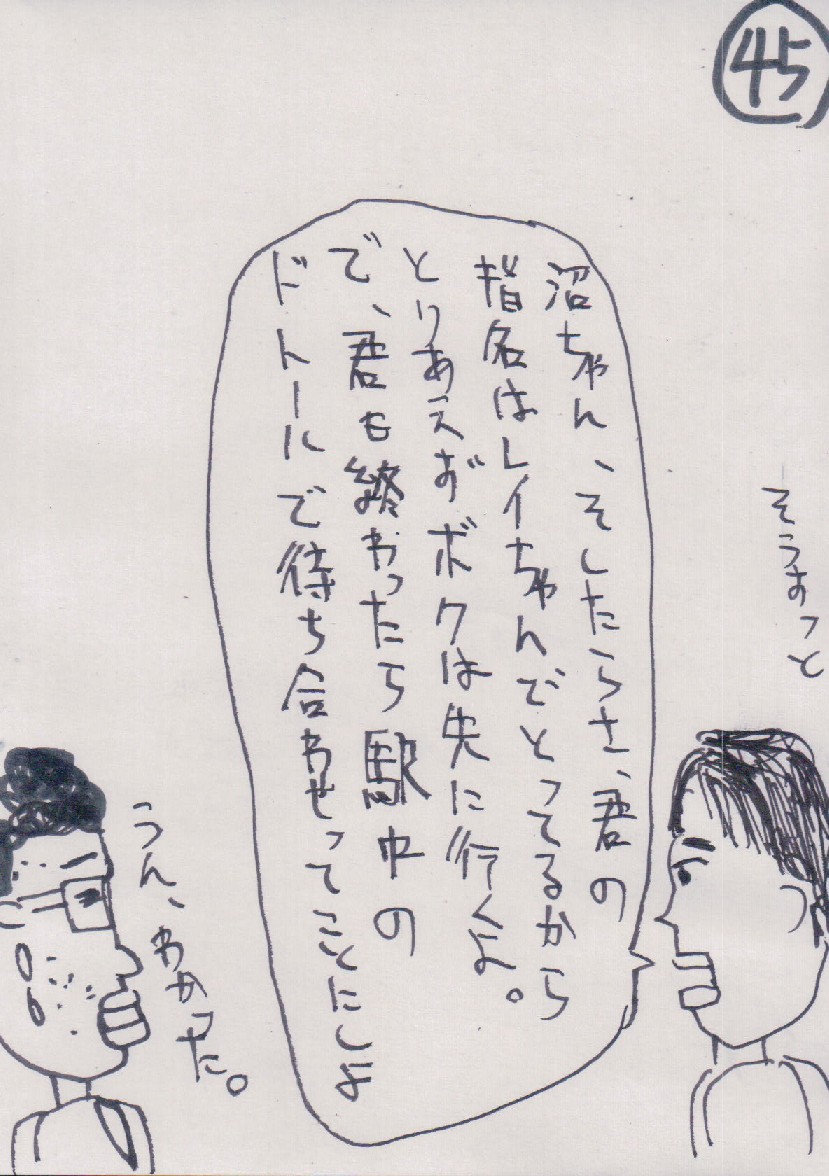 45
そうすっと
沼ちゃん、そしたらさ、君の
指名はレイちゃんでとってるから
とりあえずボクは先に行くよ。
で、君も終わったら駅中の
ドトールで待ち合わせってことにしよ
うん、わかった。